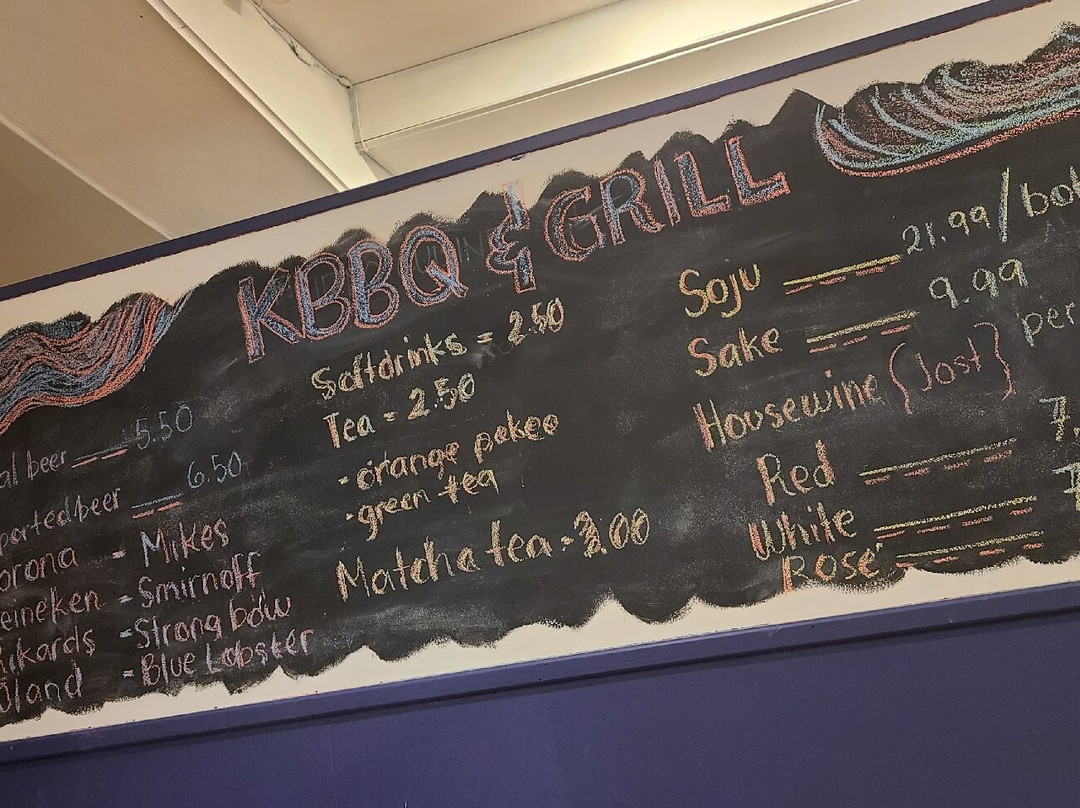 KBBQ & GRILL
al beer 5.50
ported beer 6.50
orona - Mikes
eineken - Smirnoff
ikards - Strong bow
land - Blue Lobster
Softdrinks = 2.50
Tea = 2.50
- orange pekoe
- green tea
Matcha tea - 3.00
Soju 21.99/bot
Sake 9.99
Housewine (Jost) per
Red 7.
White 7
Rosé